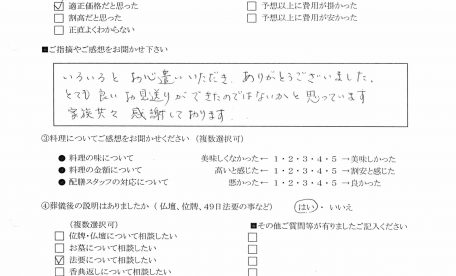 ☑ 適正価格だと思った □ 予想以上に費用が掛かった
□ 割高だと思った □ 予想以上に費用が安かった
□ 正直よくわからない
■ご指摘やご感想をお聞かせ下さい
いろいろと お心遣いいただき、ありがとうございました。
とても良いお見送りができたのではないかと思っています
家族共々 感謝しております.
③料理についてご感想をお聞かせください(複数選択可)
● 料理の味について 美味しくなかった← 1・2・3・4・5 →美味しかった
● 料理の金額について 高いと感じた← 1・2・3・4・5 →割安と感じた
● 配膳スタッフの対応について 悪かった← 1・2・3・4・5 →良かった
④葬儀後の説明はありましたか(仏壇、位牌、49日法要の事など) はい・いいえ
(複数選択可) ■その他ご質問等が有りましたらご記入ください
□ 位牌・仏壇について相談したい □
□ お墓について相談したい □
☑ 法要について相談したい □
□ 香典返しについて相談したい □